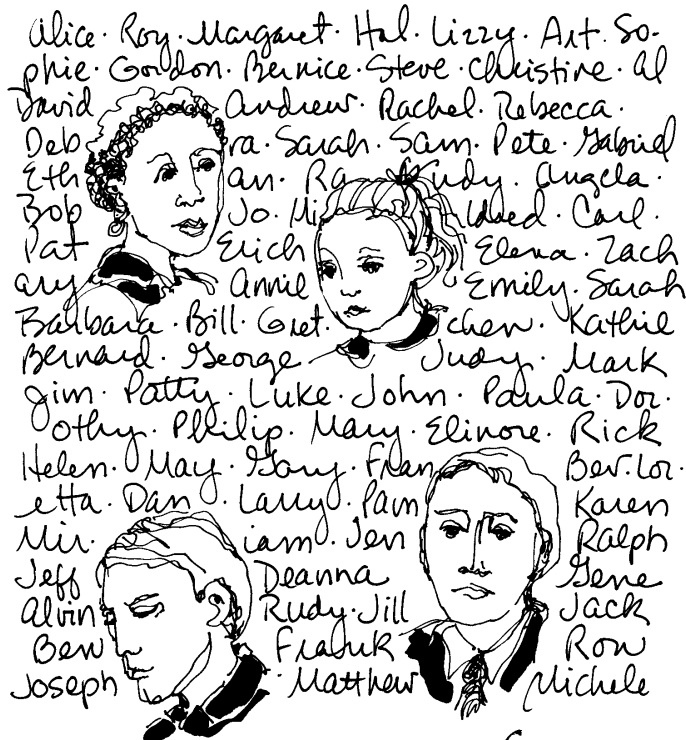 Alice · Roy · Margaret · Hal · Lizzy · Art · So-
phie · Gordon · Bernice · Steve · Christine · Al
David Andrew · Rachel · Rebecca ·
Deb ra · Sarah · Sam · Pete · Gabriel
Eth an · Ra Rudy · Angela ·
Bob Jo · Mi ldred · Carl ·
Pat Erich Elena · Zach
ary Annie Emily · Sarah
Barbara · Bill · Gret · chen · Kathie
Bernard · George Judy · Mark
Jim · Patty · Luke · John · Paula · Dor ·
othy · Philip · Mary · Elinore · Rick
Helen · May · Gary · Fran Bev · Lor ·
etta · Dan · Larry · Pam Karen
Mir · iam · Jen Ralph
Jeff Deanna Gene
Alvin Rudy · Jill Jack
Ben Frank Ron
Joseph · Matthew Michele